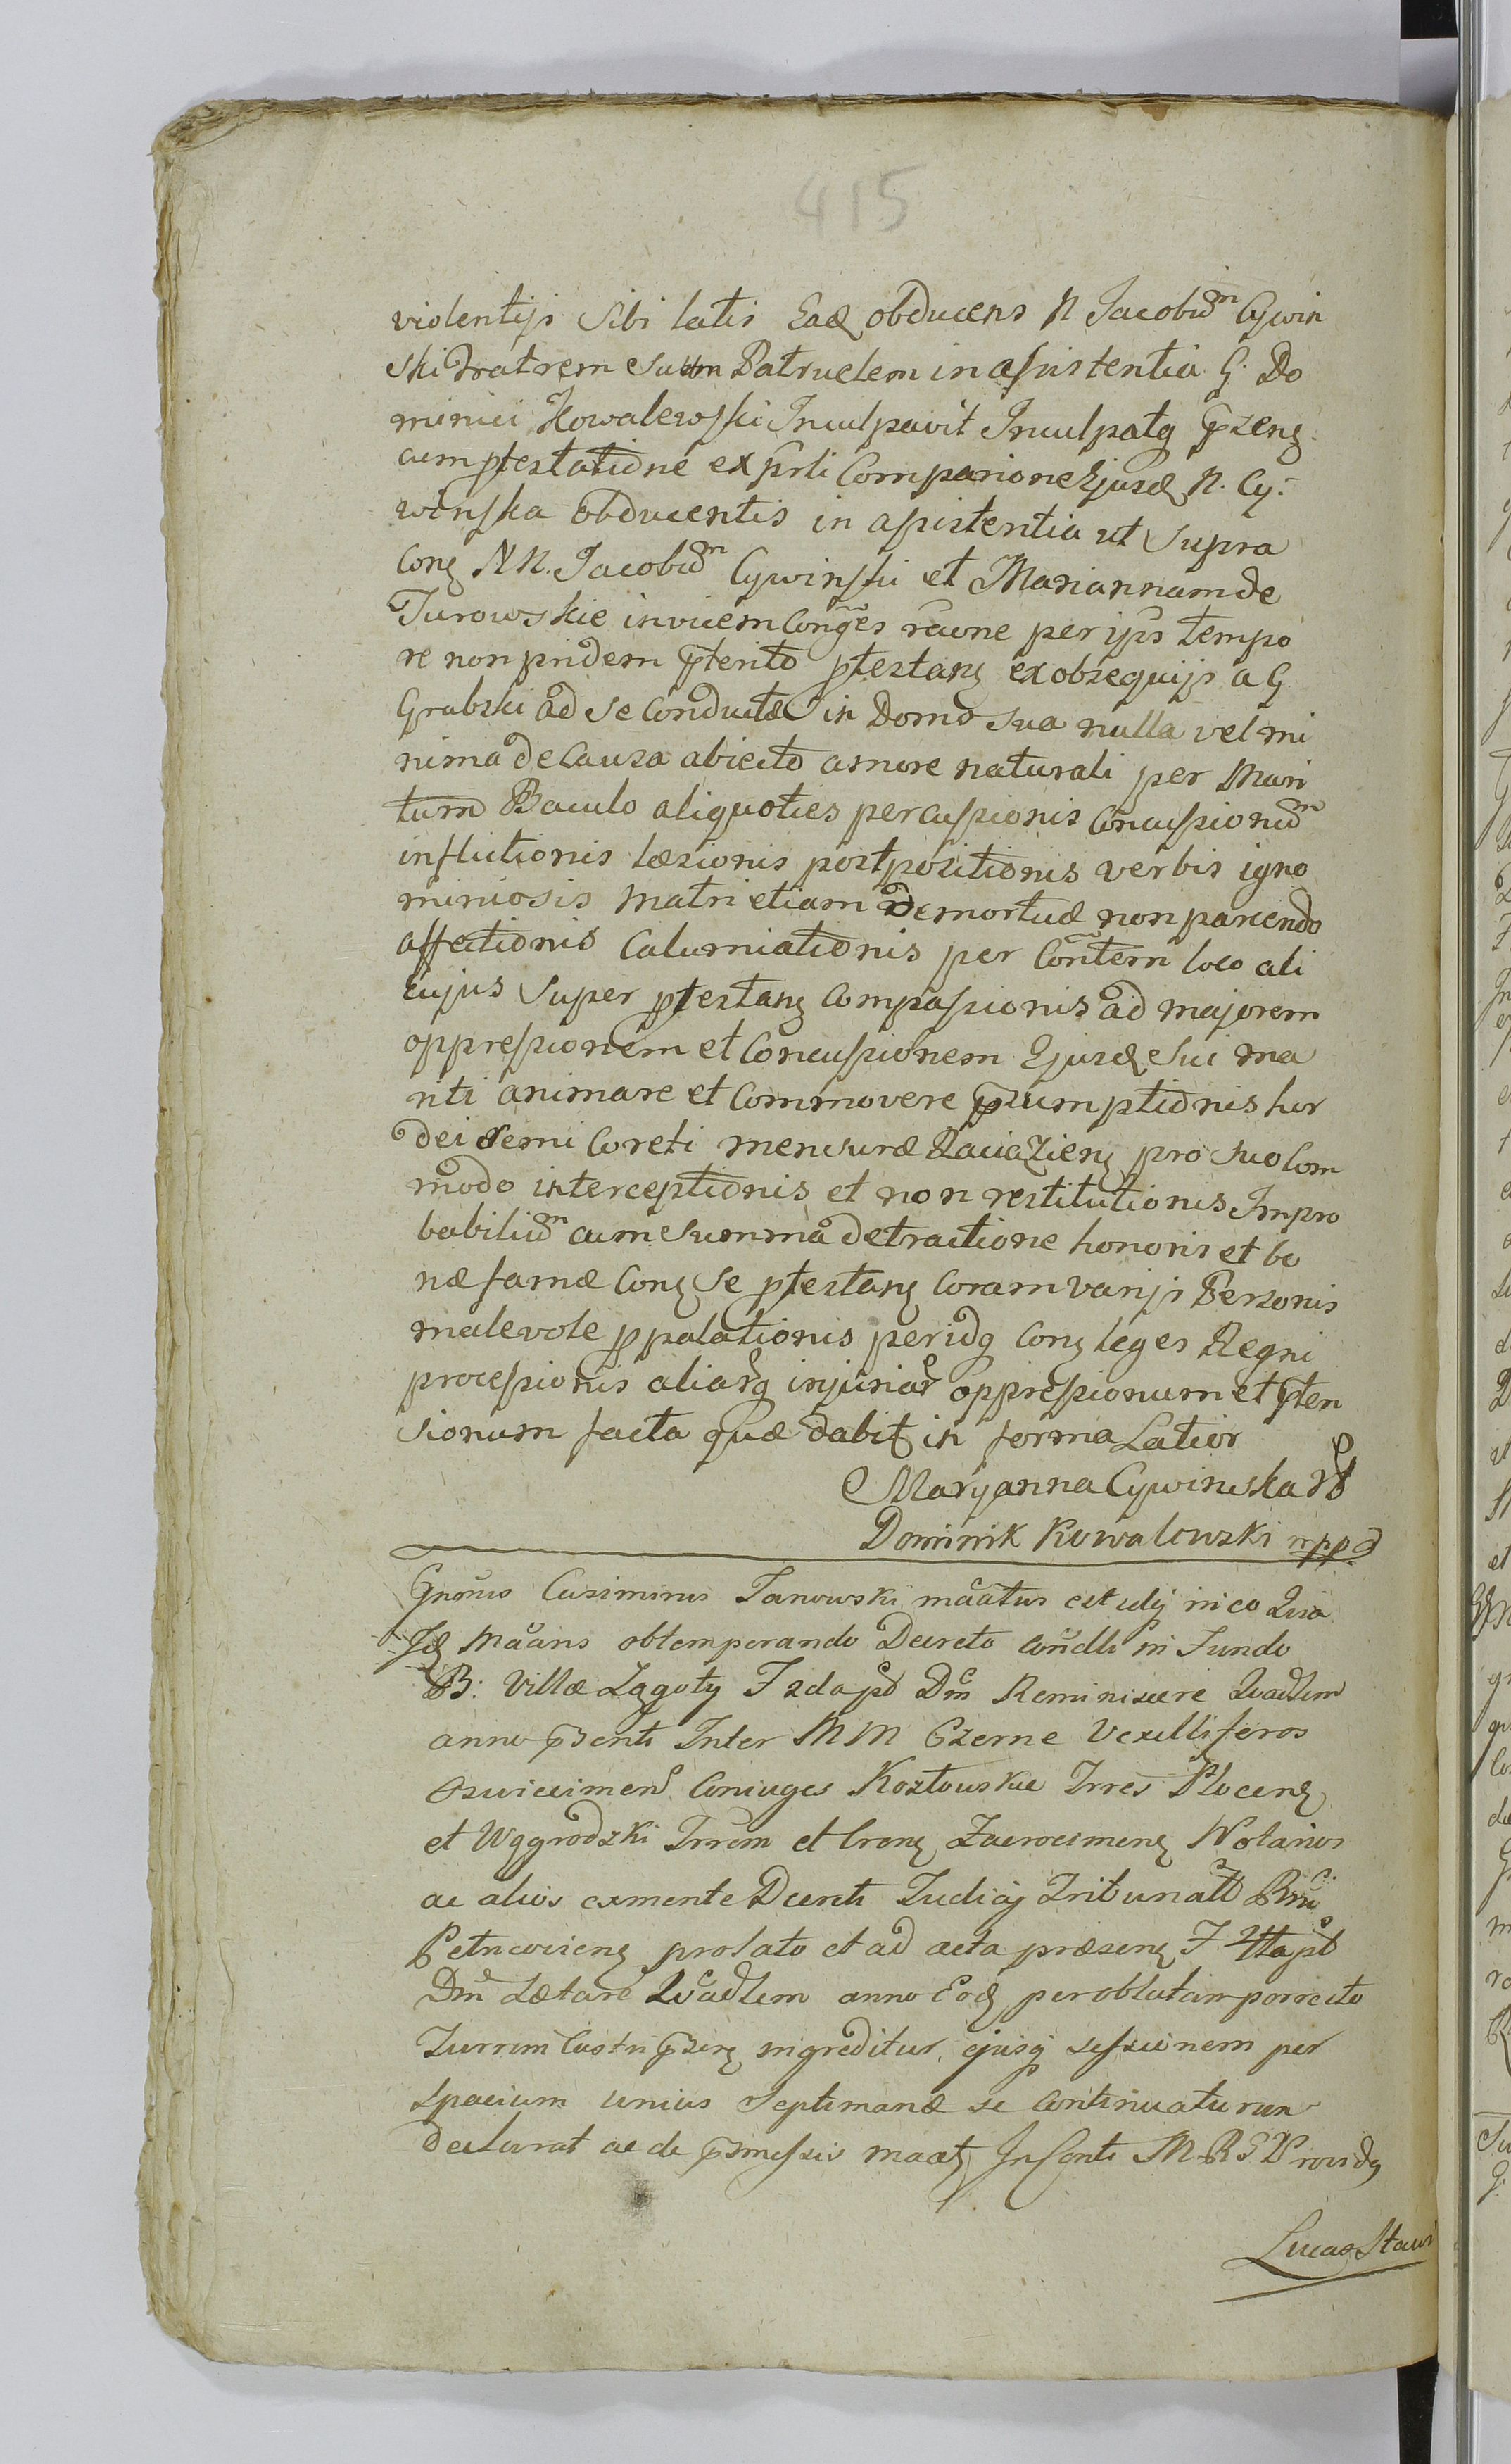 415
violentijs Sibi latis Ead obducens N Jacobum Cywin
ski Fratrem Suum Patruelem in assistentia G. Do
minici Kowalewski Inculpavit Inculpatq przens
cum ptestatione ex prti Comparione Ejusd N. Cy-
winska obducentis in assistentia ut Supra
Cons NN. Jacobum Cywinski et Mariannam de
Turowskie invicem Conges raone per ipsos tempo
re non pridem pterito ptestans ex obsequijs a G
Grabski ad Se Conductæ in Domo Sua nulla vel mi
nima de Causa abiecto amore naturali per Mari
tum Baculo aliquoties percussionis Concussionum
inflictionis læsionis postpositionis verbis igno
miniosis Matri etiam Demortuæ non parcendo
affectionis Calumniationis per Contem loco ali
cujus Super ptestans Compassionis ad majorem
oppressionem et Concussionem Ejusd Sui ma
riti animare et Commovere przumptionis hor
dei Semi Coreti mensuræ Raciaziens pro Suo Com
modo interceptionis et non restitutionis Impro
babilium cum Summa detractione honoris et bo
næ famæ Cons Se ptestans Coram varijs Personis
malevole ppalationis peridq Cons leges Regni
processionis aliarq injuriar oppressionum et pten
sionum facta quæ dabit in forma Latior
Maryanna Cywinska
Dominik Kowalewski mpp
Gnosus Casimirus Janowski maatus est idq in eo Quia
Id Maans obtemperando Decreto condli in Fundo
B: Villæ Zągoty F 2da pt Dm Reminiscere Quadlem
anno przenti Inter MM Czerne Vexilliferos
Oswiecimens Coniuges Kozłowskie Trres Płocens
et Węgrodzki Trrem et Crens Zacrocimens Notarios
ac alios ex mente Decreti Judicij Tribunalis
Petricoviens prolato et ad acta præsens F 4ta pt
Dm Lætare Quadlem anno Eod per oblatam porrecto
Turrim Castri przens ingreditur, ejusq sessionem per
spacium unius Septimanæ se continuaturum
declarat ac de przmissis maat
Lucas Staw